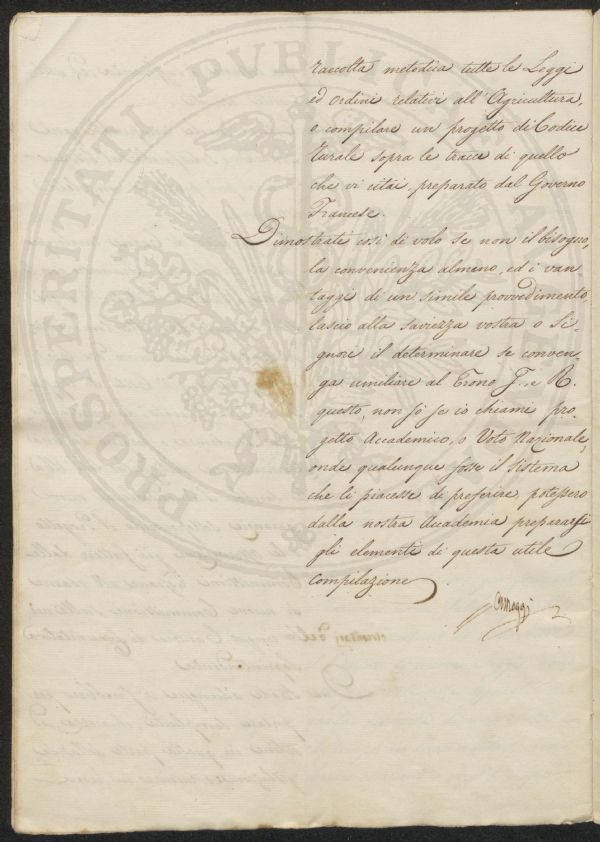 raccolta metodica tutte le Leggi
ed ordini relativi all'Agricoltura,
o compilare un progetto di Codice
rurale sopra le tracce di quello
che vi citai, preparato dal Governo
Francese.
Dimostrate così di volo se non il bisogno,
la convenienza almeno, ed i van
taggi di un simile provvedimento,
lascio alla saviezza vostra o Si-
gnori il determinare se conven-
ga umiliare al Trono I. e R.
questo, non so se io chiami pro-
getto Accademico, o Voto Nazionale,
onde qualunque fosse il sistema
che li piacesse di preferire, potessero
dalla nostra Accademia prepararsi
gli elementi di questa utile
compilazione
PROSPERITATI PVBLICAE